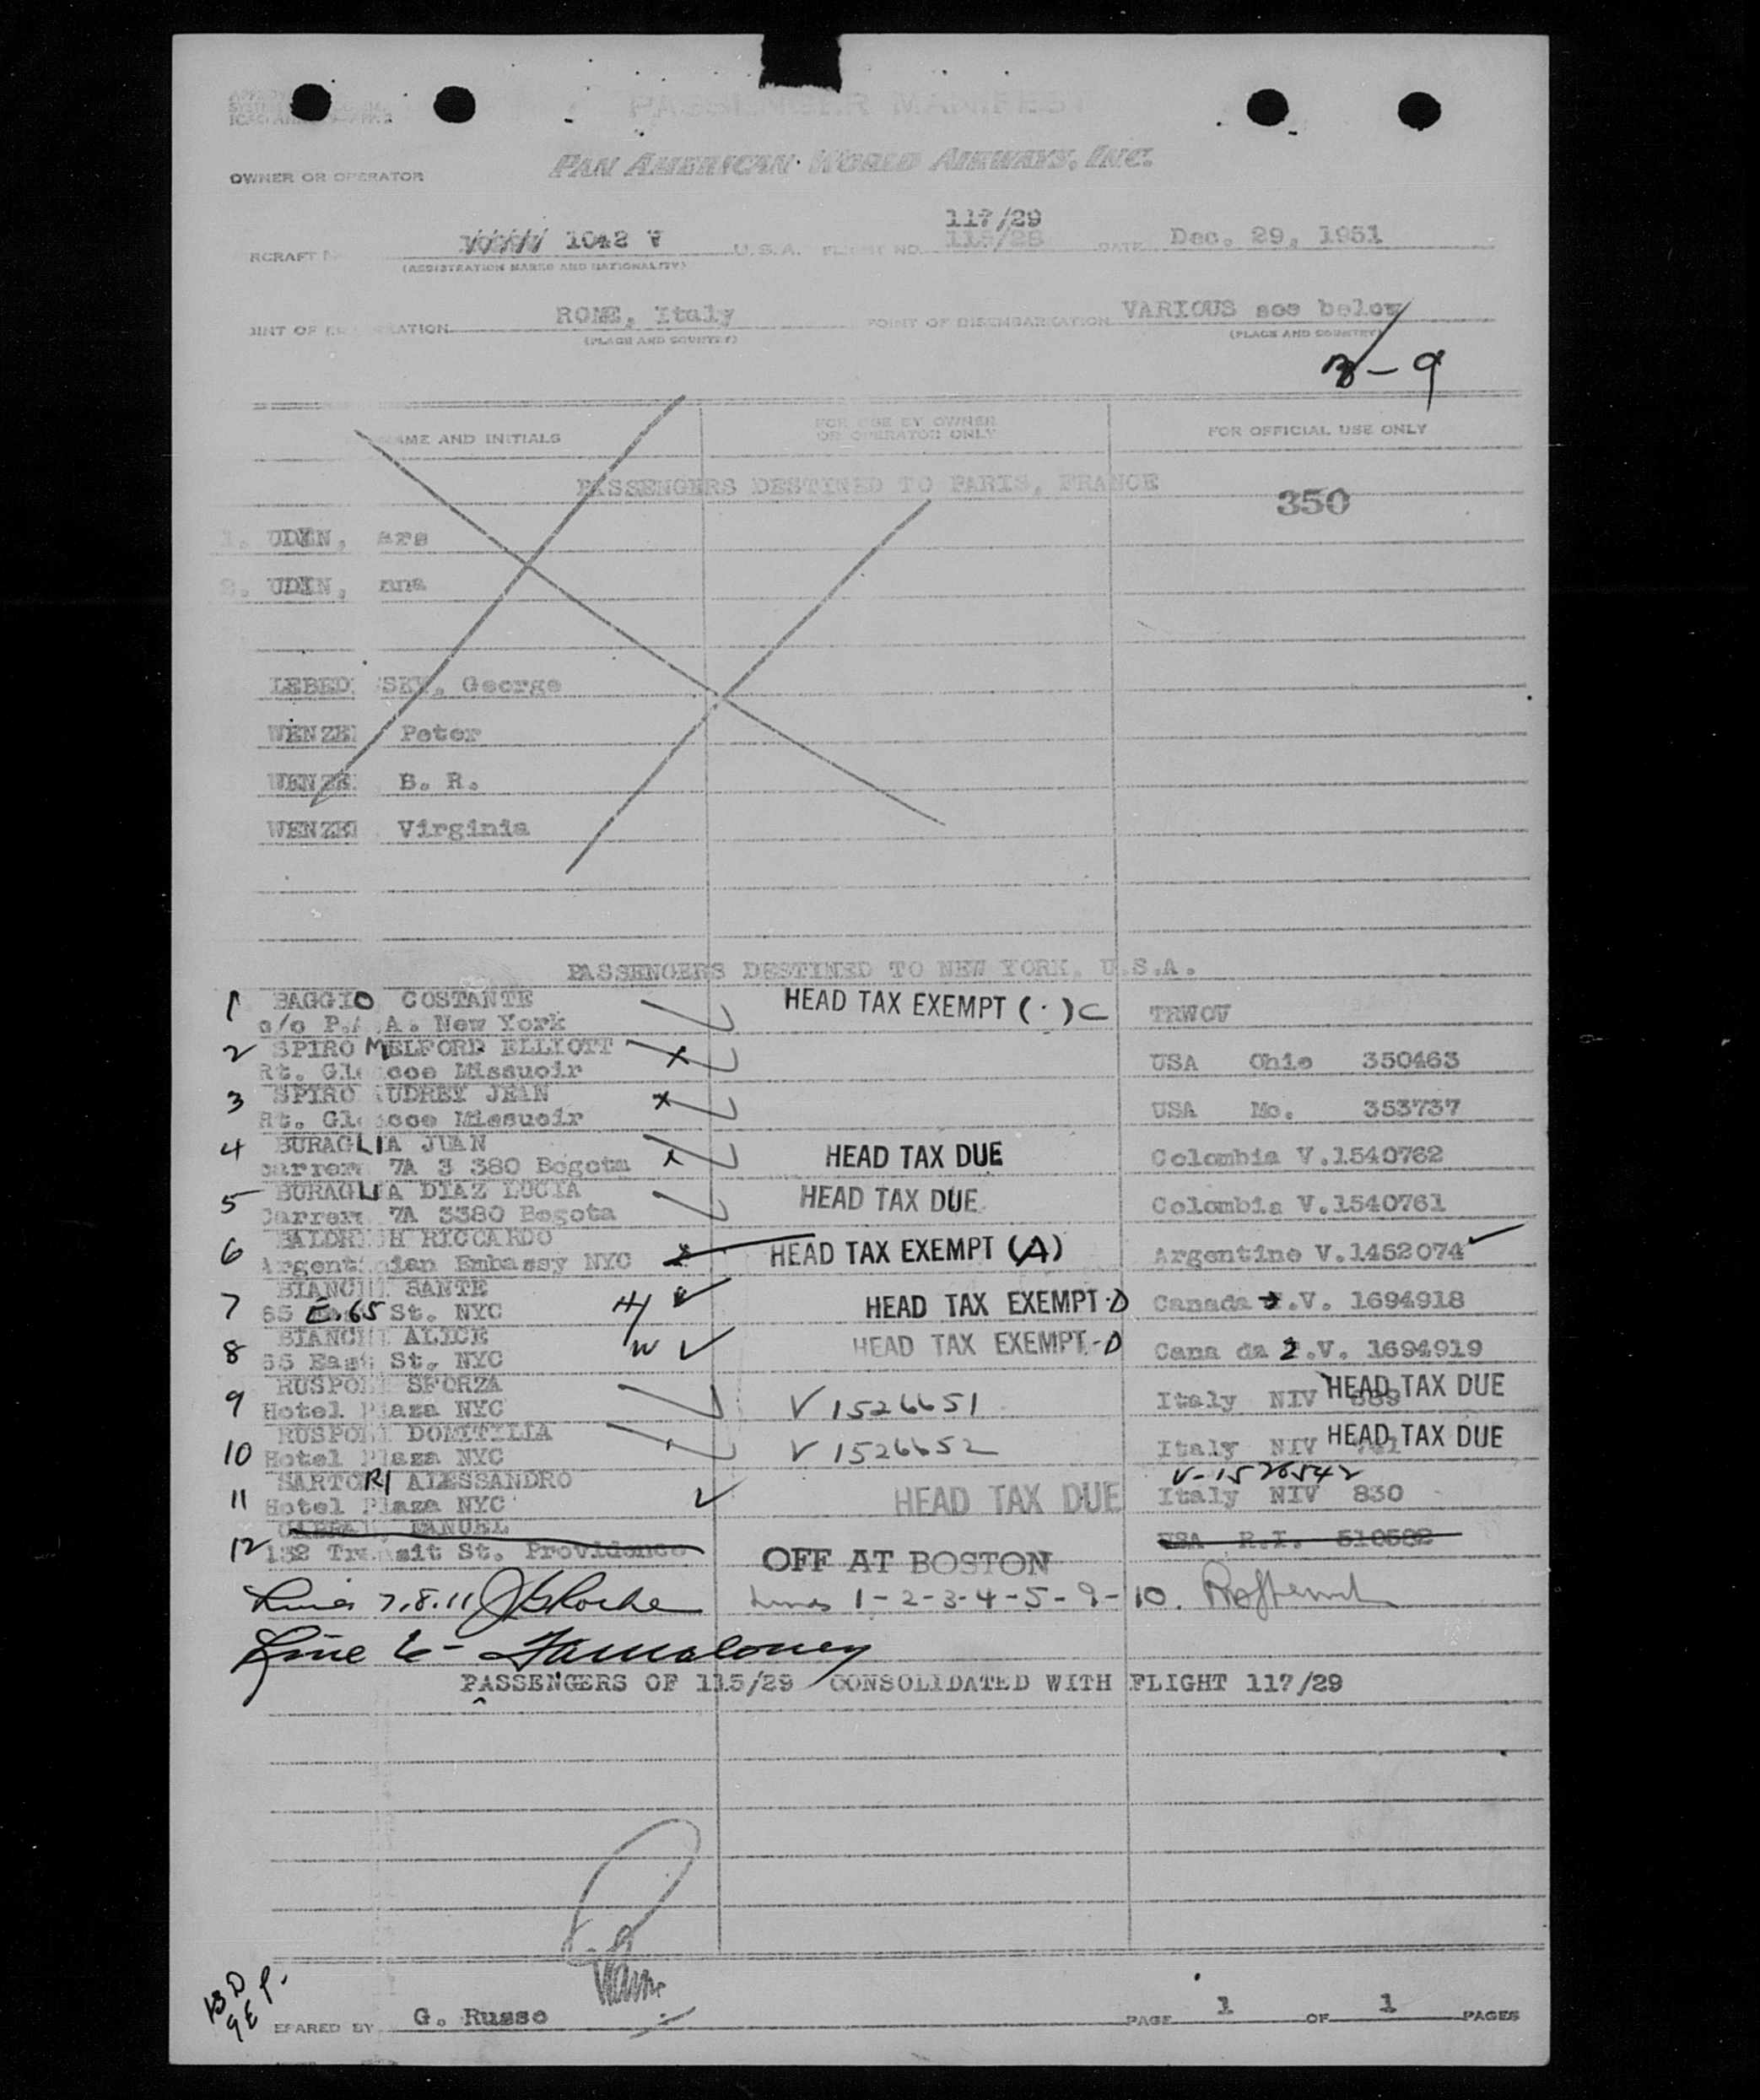 PASSENGER MANIFEST
OWNER OR OPERATOR PAN AMERICAN WORLD AIRWAYS, INC.
117/29
RCRAFT 1042 V U.S.A. FLIGHT NO. 115/28 DATE Dec. 29, 1951
(REGISTRATION MARKS AND NATIONALITY)
ROME, Italy POINT OF DISEMBARKATION VARIOUS see below
(PLACE AND COUNTRY) (PLACE AND COUNTRY)
- 9
AME AND INITIALS FOR USE BY OWNER OR OPERATOR ONLY FOR OFFICIAL USE ONLY
PASSENGERS DESTINED TO PARIS, FRANCE
350
1. UDIN, ara
2. UDIN, nna
LEBED SKY, George
WENZE Peter
WENZE B. R.
WENZE Virginia
PASSENGERS DESTINED TO NEW YORK, U.S.A.
1 BAGGIO COSTANTE HEAD TAX EXEMPT ( ) C TRWOV
c/o P.A.A. New York
2 SPIRO MELFORD ELLIOTT X USA Ohio 350463
Rt. Gl coe Missuoir
3 SPIRO AUDREY JEAN X USA Mo. 353737
Rt. Gl coe Missuoir
4 BURAGLIA JUAN HEAD TAX DUE Colombia V.1540762
carrera 7A 3 380 Bogota
5 BURAGLIA DIAZ LUCIA HEAD TAX DUE Colombia V.1540761
Carrera 7A 3380 Bogota
6 BALDRICH RICCARDO HEAD TAX EXEMPT (A) Argentine V.1452074
Argentinian Embassy NYC
7 BIANCHI SANTE HEAD TAX EXEMPT-D Canada .V. 1694918
65 E.65 St. NYC
8 BIANCHI ALICE HEAD TAX EXEMPT-D Cana da 2.V. 1694919
65 East St. NYC
9 RUSPOLI SFORZA V 1526651 Italy NIV 689 HEAD TAX DUE
Hotel Plaza NYC
10 RUSPOLI DOMITILIA V 1526652 Italy NIV HEAD TAX DUE
Hotel Plaza NYC
11 SARTORI ALESSANDRO HEAD TAX DUE V-1526542
Hotel Plaza NYC Italy NIV 830
12 MANUEL USA R.I. 510582
132 Transit St. Providence OFF AT BOSTON
Lines 7.8.11 Lines 1-2-3-4-5-9-10.
Line 6- Maloney
PASSENGERS OF 115/29 CONSOLIDATED WITH FLIGHT 117/29
13 D
9 E P.
EPARED BY G. Russo PAGE 1 OF 1 PAGES